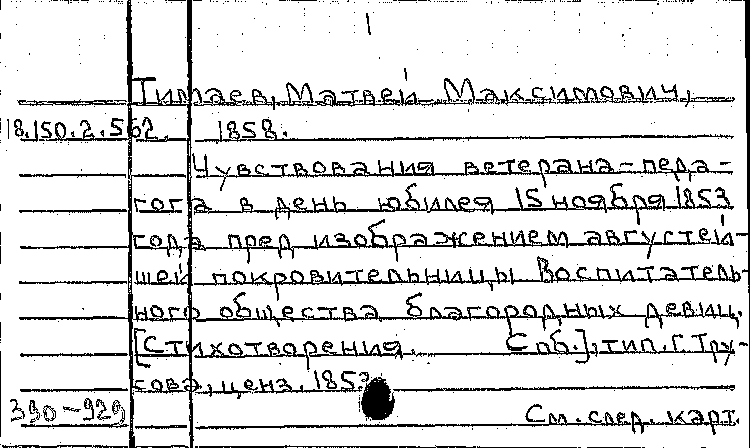 Тимаев, Матвей Максимович,
18.150.2.562. 1858.
Чувствования ветерана-педа-
гога в день юбилея 15 ноября 1853
года пред изображением августей-
шей покровительницы Воспитатель-
ного общества благородных девиц.
[Стихотворения. Спб.], тип. Г. Тру-
сова, ценз. 1853
390-929 См. след. карт.